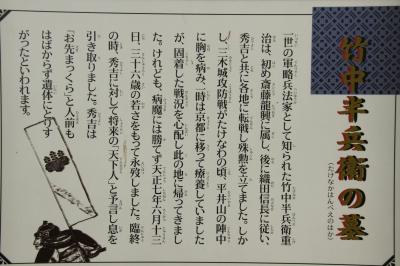 竹中半兵衛の墓
(たけなかはんべえのはか)
一世の軍略兵法家として知られた竹中半兵衛重
治は、初め斎藤龍興に属し、後に織田信長に従い、
秀吉と共に各地に転戦し殊勲を立てました。しか
し、三木城攻防戦がたけなわの頃、平井山の陣中
に胸を病み、一時は京都に移って療養していました
が、固着した戦況を心配し此の地に帰ってきまし
た。けれども、病魔には勝てず天正七年六月十三
日、三十六歳の若さをもって永歿しました。臨終
の時、秀吉に対して将来の「天下人」と予言し息を
引き取りました。秀吉は
「お先まっくら」と人前も
はばからず遺体にとりす
がったといわれます。